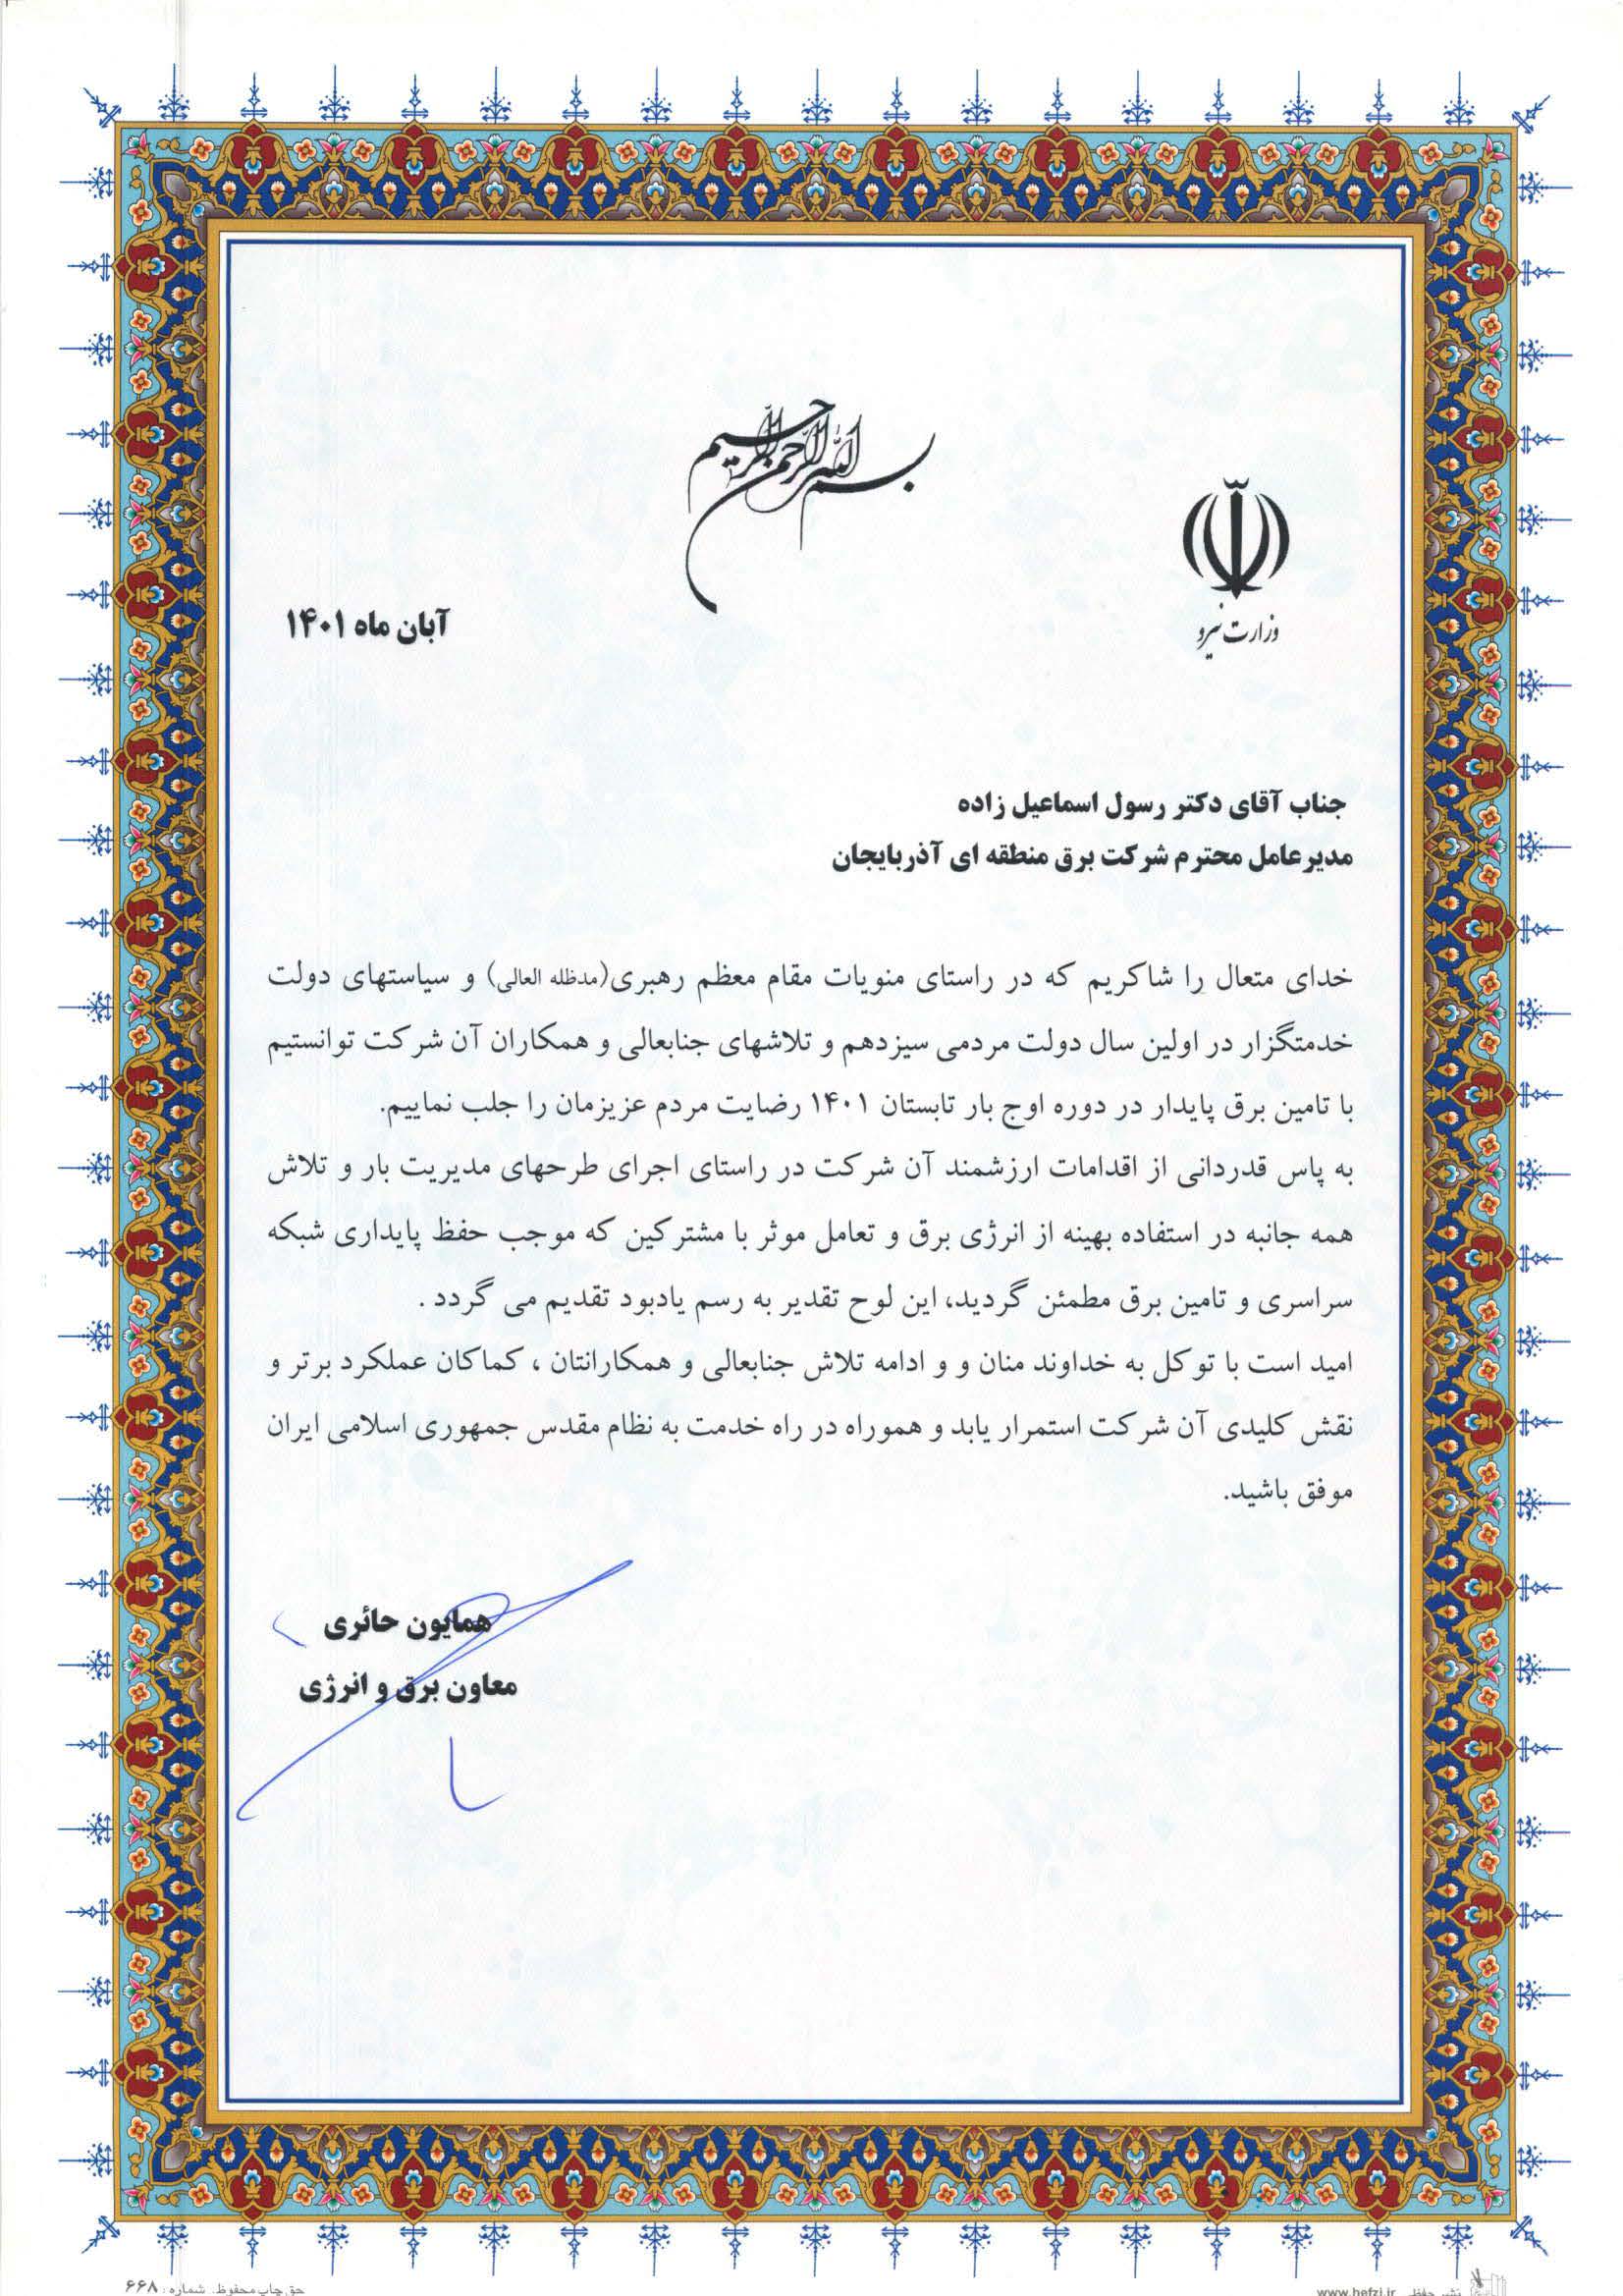 بسم الله الرحمن الرحیم
وزارت نیرو
آبان ماه ۱۴۰۱
جناب آقای دکتر رسول اسماعیل زاده
مدیرعامل محترم شرکت برق منطقه ای آذربایجان
خدای متعال را شاکریم که در راستای منویات مقام معظم رهبری(مدظله العالی) و سیاستهای دولت
خدمتگزار در اولین سال دولت مردمی سیزدهم و تلاشهای جنابعالی و همکاران آن شرکت توانستیم
با تامین برق پایدار در دوره اوج بار تابستان ۱۴۰۱ رضایت مردم عزیزمان را جلب نماییم.
به پاس قدردانی از اقدامات ارزشمند آن شرکت در راستای اجرای طرحهای مدیریت بار و تلاش
همه جانبه در استفاده بهینه از انرژی برق و تعامل موثر با مشترکین که موجب حفظ پایداری شبکه
سراسری و تامین برق مطمئن گردید، این لوح تقدیر به رسم یادبود تقدیم می گردد .
امید است با توکل به خداوند منان و و ادامه تلاش جنابعالی و همکارانتان ، کماکان عملکرد برتر و
نقش کلیدی آن شرکت استمرار یابد و هموراه در راه خدمت به نظام مقدس جمهوری اسلامی ایران
موفق باشید.
همایون حائری
معاون برق و انرژی
www.hefzi.ir نشر حفظی
حق چاپ محفوظ. شماره : ۶۶۸